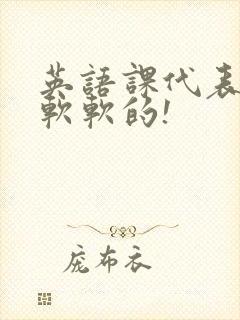 英語課代表
軟軟的!
庞布衣